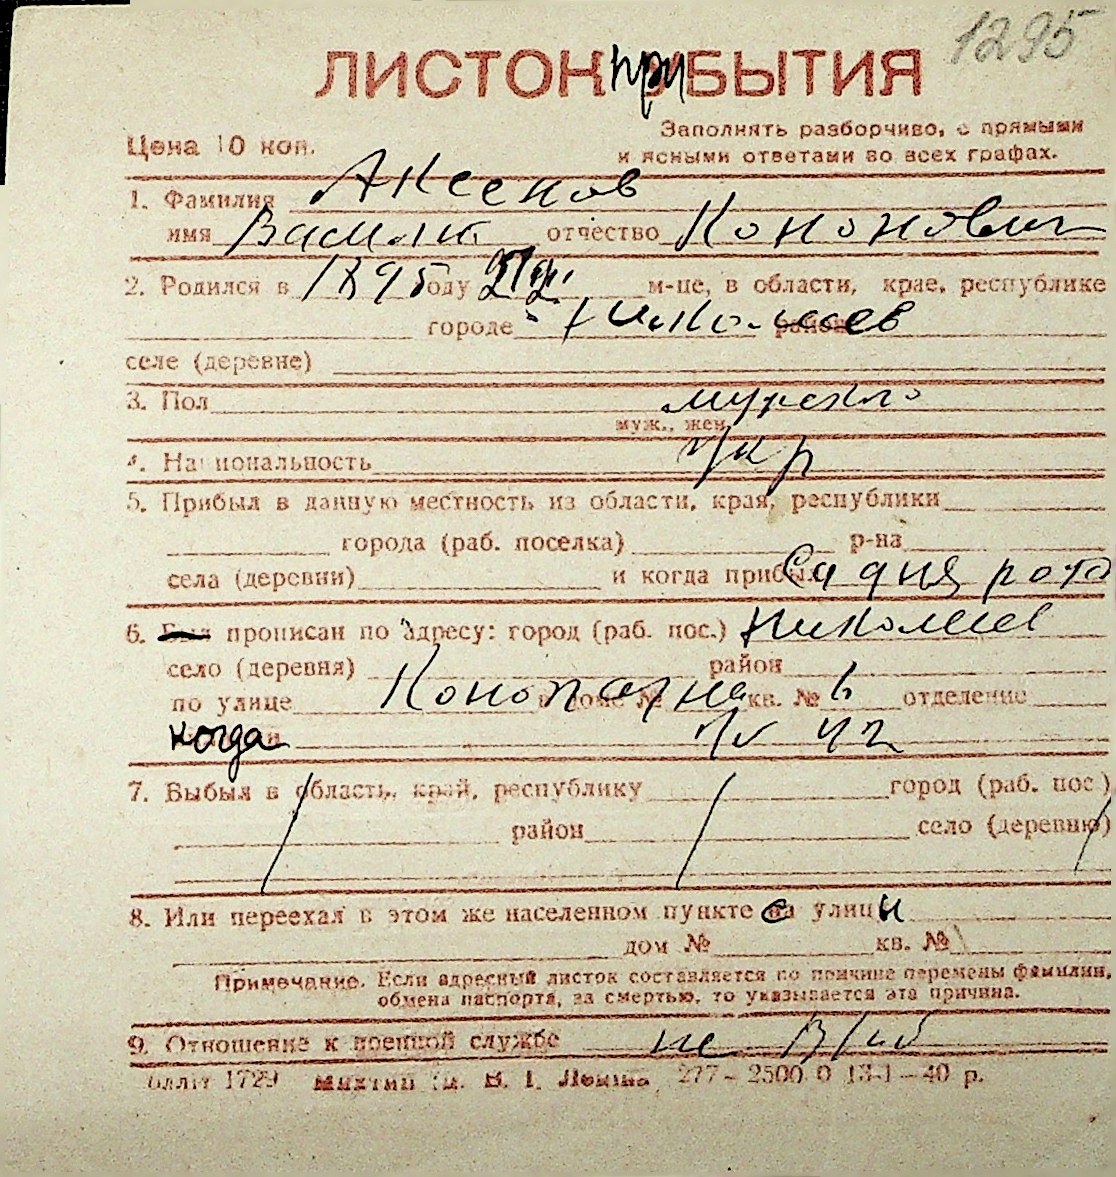 1295
ЛИСТОК прИБЫТИЯ
Цена 10 коп.
Заполнять разборчиво, с прямыми
и ясными ответами во всех графах.
1. Фамилия Аксенов
имя Василий отчество Кононович
2. Родился в 1895 году м-це, в области, крае, республике
городе Николаев
селе (деревне)
3. Пол мужско
муж., жен.
4. Национальность Укр
5. Прибыл в данную местность из области, края, республики
города (раб. поселка) р-на
села (деревни) и когда прибыл Со дня рож
6. Был прописан по адресу: город (раб. пос.) Николаев
село (деревня) район
по улице в доме № кв. № 6 отделение
когда IV 42
7. Выбыл в область, край, республику город (раб. пос.)
район село (деревню)
8. Или переехал в этом же населенном пункте с улицы
дом № кв. №
Примечание. Если адресный листок составляется по причине перемены фамилии,
обмена паспорта, за смертью, то указывается эта причина.
9. Отношение к военной службе не В/об
Обллит 1729 им. В. І. Леніна 277 – 2500 0 13-1 – 40 р.